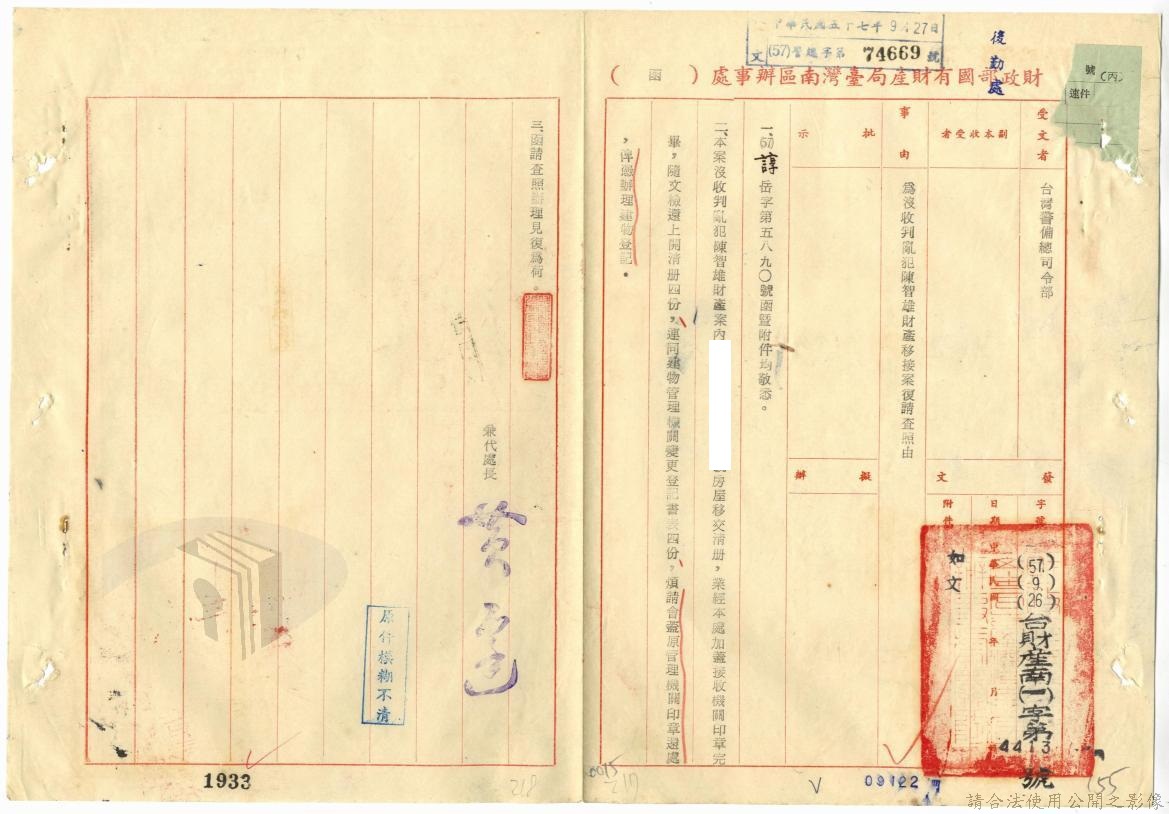 中華民國五十七年9月27日
文(57)警總字第 74669 號
後勤處
號(丙)
速件
財政部國有財產局臺灣南區辦事處(函)
受文者
台灣警備總司令部
副本收受者
批示
事由
為沒收判亂犯陳智雄財產移接案復請查照由
擬辦
發文
字號
(57.)(9.)(26)台財產南(一)字第4413號
日期
中華民國 年 月
附件
如文
一、(57)諄岳字第五八九〇號函暨附件均敬悉。
二、本案沒收判亂犯陳智雄財產案內 號房屋移交清册,業經本處加蓋接收機關印章完
畢,隨文檢還上開清册四份,連同建物管理機關變更登記書表四份,煩請會蓋原管理機關印章還處
,俾憑辦理建物登記。
三、函請查照辦理見復為荷。
兼代處長
原件模糊不清
1933
218
0015
217
09122
155
請合法使用公開之影像